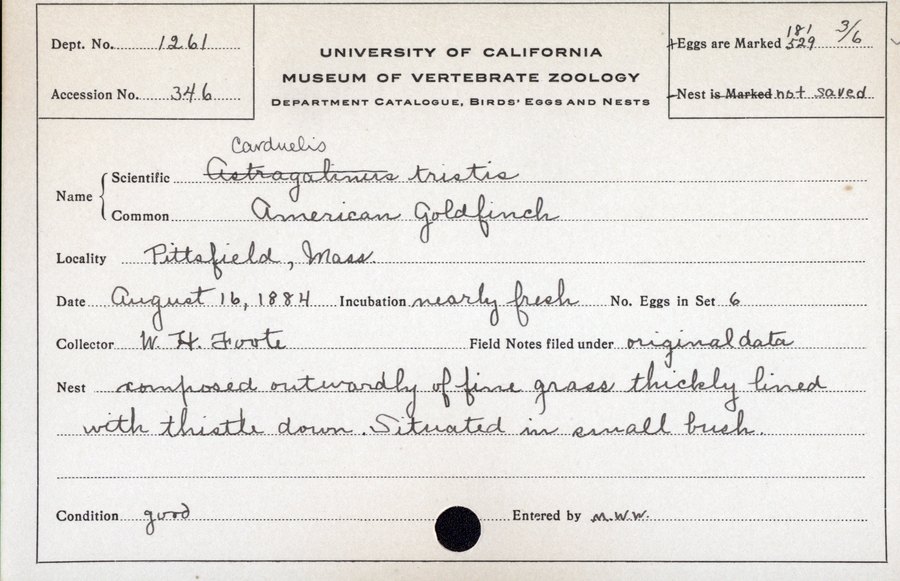 Dept. No. 1261
Accession No. 346
UNIVERSITY OF CALIFORNIA
MUSEUM OF VERTEBRATE ZOOLOGY
DEPARTMENT CATALOGUE, BIRDS' EGGS AND NESTS
Eggs are Marked 181/529 3/6
Nest is Marked not saved
Carduelis
Name
Scientific Astragalinus tristis
Common American Goldfinch
Locality Pittsfield, Mass.
Date August 16, 1884 Incubation nearly fresh No. Eggs in Set 6
Collector W. H. Foote Field Notes filed under original data
Nest composed outwardly of fine grass thickly lined
with thistle down. Situated in small bush.
Condition good Entered by M.W.W.